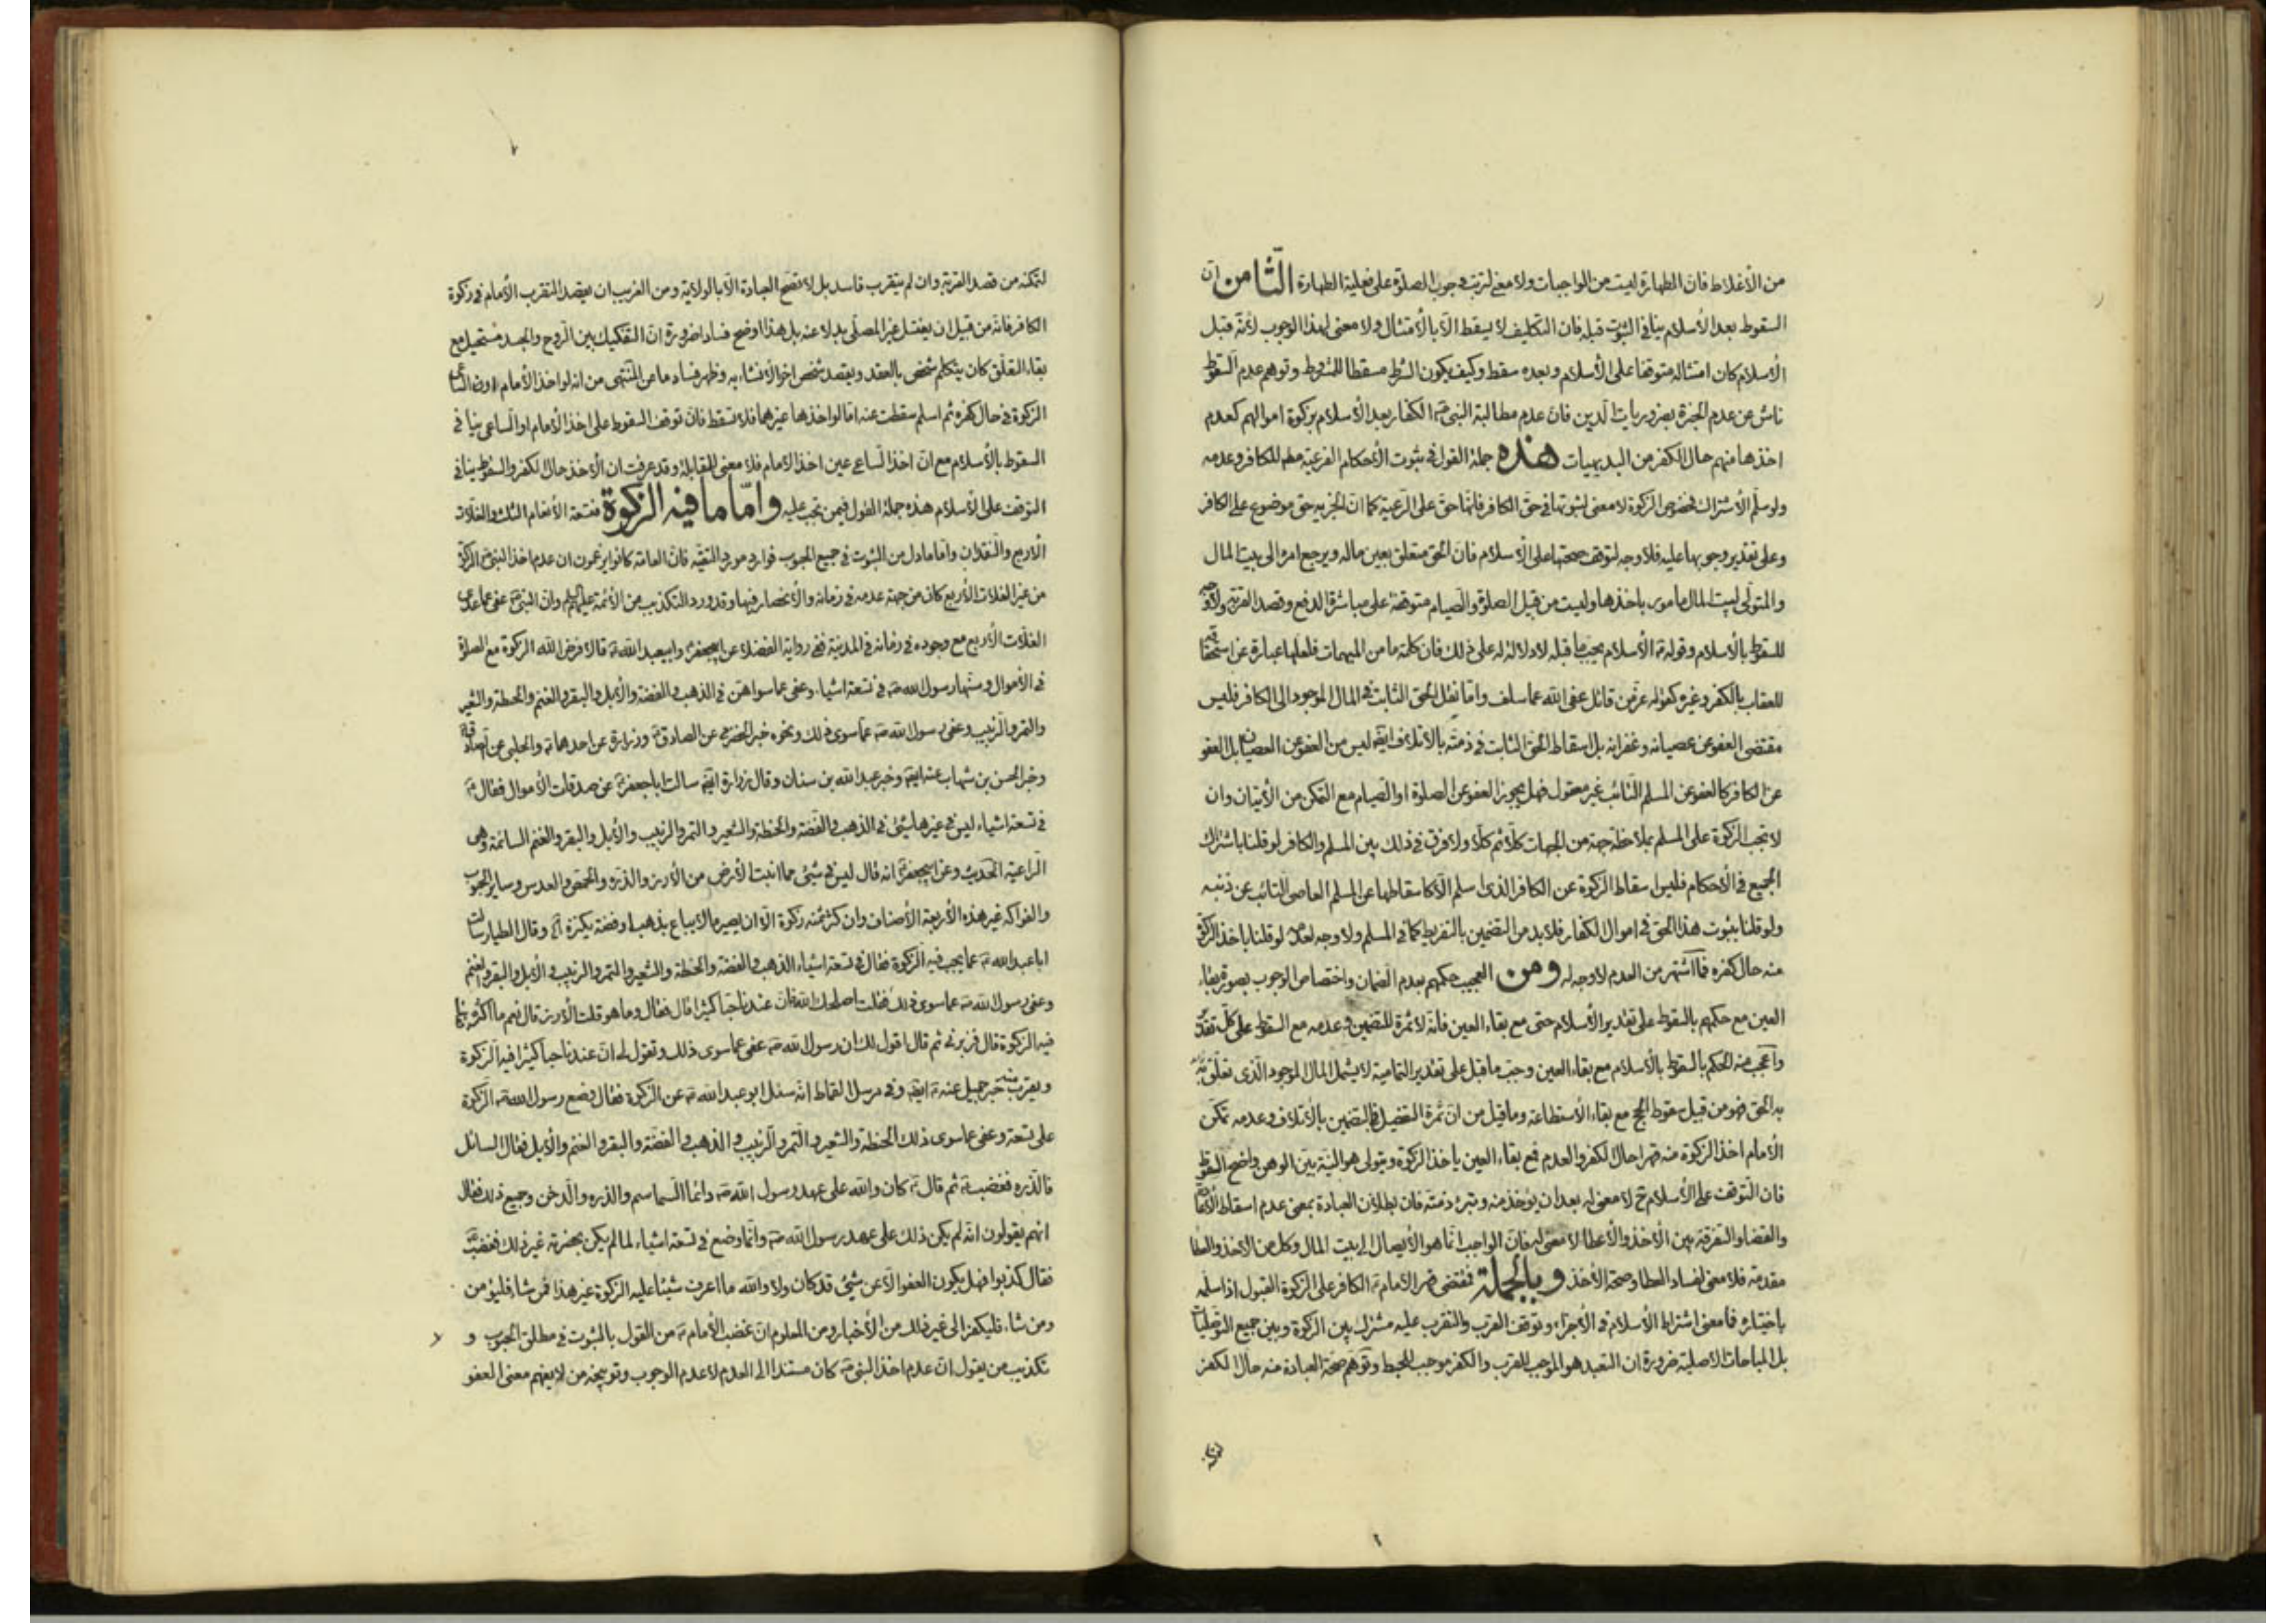 من الأغلاط فانّ الطهارة ليست من الواجبات ولا معنى لترتب وجوب الصلوة على فعلية الطهارة الثّامن انّ
السقوط بعد الأسلام ينافى الثبوت قبله فان التكليف لا يسقط الّا بالأمتثال ولا معنى لهذا الوجوب لأنّه قبل
الأسلام كان امتثاله متوقفا على الأسلام وبعده سقط وكيف يكون الشرط مسقطا للمشروط وتوهم عدم السقوط
ناش عن عدم الخبرة بضروريات الدين فانّ عدم مطالبة النبى ص الكفار بعد الأسلام بزكوة اموالهم كعدم
اخذها منهم حال الكفر من البديهيات هذه جملة القول فى ثبوت الأحكام الفرعية مطم للكافر وعدمه
ولو سلّم الأشتراك فخصوص الزكوة لا معنى لثبوتها فى حق الكافر فانّها حق على الرّعية كما انّ الجزية حق موضوع على الكافر
وعلى تقدير وجوبها عليه فلا وجه لتوقف صحتها على الأسلام فانّ الحق متعلق بعين ماله ويرجع امره الى بيت المال
والمتولّى لبيت المال مامور باخذها وليست من قبيل الصلوة والصيام متوقفة على مباشرة الدفع وقصد القربة ولا وجه
للسقوط بالأسلام وقوله ع الأسلام يجبّ ما قبله لا دلالة له على ذلك فان كلمة ما من المبهمات فلعلها عبارة عن استحقاقه
للعقاب بالكفر وغيره كقوله عزّ من قائل عفى الله عما سلف وامّا نقل الحق الثابت فى المال الموجود الى الكافر فليس
مقتضى العفو عن عصيانه وغفرانه بل اسقاط الحق الثابت فى ذمته بالأتلاف ايضا ليس من العفو عن العصيان بل العفو
عن الكافر كالعفو عن المسلم التائب غير معقول فهل يجوز العفو عن الصلوة او الصيام مع التمكن من الأتيان وان
لا تجب الزكوة على المسلم بملاحظة جهة من الجهات كلّا ثم كلّا ولا فرق فى ذلك بين المسلم والكافر لو قلنا باشتراك
الجميع فى الأحكام فليس اسقاط الزكوة عن الكافر الذى اسلم الّا كاسقاطها عن المسلم العاصى التائب عن ذنبه
ولو قلنا بثبوت هذا الحق فى اموال الكفار فلا بد من التضمين بالتفريط كما فى المسلم ولا وجه لعدمه لو قلنا باخذ الزكوة
منه حال كفره فما اشتهر من العدم لا وجه له ومن العجيب حكمهم بعدم الضمان واختصاص الوجوب بصورة بقاء
العين مع حكمهم بالسقوط على تقدير الأسلام حتى مع بقاء العين فانّه لا ثمرة للتضمين وعدمه مع السقوط على كل تقدير
واعجب منه الحكم بالسقوط بالأسلام مع بقاء العين وجبّ ما قبل على تقدير التمامية لا يشمل المال الموجود الّذى تعلّق
به الحق فهو من قبيل سقوط الحج مع بقاء الأستطاعة وما قيل من انّ ثمرة التفصيل فى التضمين بالأتلاف وعدمه تمكّن
الأمام اخذ الزكوة منه قهرا حال الكفر والعدم فمع بقاء العين ياخذ الزكوة ويتولى هو النيّة بيّن الوهن واضح السقوط
فان التوقف على الأسلام ح لا معنى له بعد ان يؤخذ منه وتبرء ذمته فان بطلان العبادة بمعنى عدم اسقاط الأعادة
والقضاء والتفرقة بين الأخذ والأعطا لا معنى له فانّ الواجب انّما هو الأيصال الى بيت المال وكل من الأخذ والعطا
مقدمة فلا معنى لفساد العطا وصحة الأخذ وبالجملة فمقتضى قهر الأمام ع الكافر على الزكوة القبول اذا سلّمه
باختياره فما معنى اشتراط الأسلام فى الأجزاء وتوقف القرب والتقرب عليه مشترك بين الزكوة وبين جميع التوصليات
بل المباحات الأصلية ضرورة ان التعبد هو الموجب للقرب والكفر موجب للحبط وتوهّم صحة العبادة منه حال الكفر
لتمكنه
لتمكنه من قصد القربة وان لم يتقرب فاسد بل لا تصحّ العبادة الّا بالولاية ومن الغريب ان يقصد التقرب الأمام فى زكوة
الكافر فانّه من قبيل ان يغتسل غير المصلّى بدلا عنه بل هذا اوضح فسادا ضرورة انّ التفكيك بين الروح والجسد مستحيل مع
بقاء التعلّق كان يتكلم شخص بالعقد ويقصد شخص اخر الأنشاء به وظهر فساد ما عن المنتهى من انه لو اخذ الأمام او الساعى
الزكوة فى حال كفره ثم اسلم سقطت عنه امّا لو اخذها غيرهما فلا تسقط فانّ توقف السقوط على اخذ الأمام او الساعى ينافى
السقوط بالأسلام مع انّ اخذ الساعى عين اخذ الأمام فلا معنى للمقابلة وقد عرفت ان الأخذ حال الكفر والسقوط ينافى
التوقف على الأسلام هذه جملة القول فيمن تجب عليه وامّا ما فيه الزكوة فتسعة الأنعام الثلث والغلات
الأربع والنقدان وامّا ما دل من الثبوت فى جميع الحبوب فوارد مورد التقيّة فانّ العامة كانوا يزعمون ان عدم اخذ النبى ص الزكوة
من غير الغلات الأربع كان من جهة عدمه فى زمانه والأنحصار فيها وقد ورد التكذيب من الأئمة عليهم السلام وانّ النبى ص عفى عما عدى
الغلات الأربع مع وجوده فى زمانه فى المدينة ففى رواية الفضلاء عن ابيجعفر ع وابيعبد الله ع قالا فرض الله الزكوة مع الصلوة
فى الأموال وسنّها رسول الله ص فى تسعة اشياء وعفى عما سواهنّ فى الذهب والفضة والأبل والبقر والغنم والحنطة والشعير
والتمر والزبيب وعفى رسول الله ص عمّا سوى ذلك ونحوه خبر الحضرمى عن الصادق ع وزرارة عن احدهما ع والحلبى عن الصادق ع
وخبر الحسن بن شهاب عنه ايضا وخبر عبد الله بن سنان وقال زرارة ايضا سالت اباجعفر ع عن صدقات الأموال فقال ع
فى تسعة اشياء ليس فى غيرها شئ فى الذهب والفضة والحنطة والشعير والتمر والزبيب والأبل والبقر والغنم السائمة وهى
الراعية الحديث وعن ابيجعفر ع انه قال ليس فى شئ مما انبت الأرض من الأرز والذره والحمص والعدس وساير الحبوب
والفواكه غير هذه الأربعة الأصناف وان كثر ثمنه زكوة الّا ان يصير مالا يباع بذهب او فضة يكنزه وقال الطيار سالت
اباعبد الله ع عما يجب فيه الزكوة فقال فى تسعة اشياء الذهب والفضة والحنطة والشعير والتمر والزبيب والأبل والبقر والغنم
وعفى رسول الله ص عما سوى ذلك فقلت اصلحك الله فانّ عندنا حبا كثيرا قال فقال وما هو قلت الأرز قال نعم ما اكثره فقلت
فيه الزكوة قال فزبرنى ثم قال اقول لك ان رسول الله ص عفى عما سوى ذلك وتقول لى انّ عندنا حبا كثيرا افيه الزكوة
ويقرب منه خبر جميل عنه ع ايضا وفى مرسل القماط انّه سئل ابو عبد الله ع عن الزكوة فقال وضع رسول الله ص الزكوة
على تسعة وعفى عما سوى ذلك الحنطة والشعير والتمر والزبيب والذهب والفضة والبقر والغنم والأبل فقال السائل
فالذره فغضب ع ثم قال ع كان والله على عهد رسول الله ص دائما السماسم والذره والدخن وجميع ذلك فقال
انهم يقولون انّه لم يكن ذلك على عهد رسول الله ص وانّما وضع فى تسعة اشياء لما لم يكن بحضرته غير ذلك فغضب
فقال كذبوا فهل يكون العفو الّا عن شئ قد كان ولا والله ما اعرف شيئا عليه الزكوة غير هذا فمن شاء فليؤمن
ومن شاء فليكفر الى غير ذلك من الأخبار ومن المعلوم انّ غضب الأمام ع من القول بالثبوت فى مطلق الحبوب و
تكذيب من يقول انّ عدم اخذ النبى ص كان مستندا الى العدم لا عدم الوجوب وتوبيخه من لا يفهم معنى العفو